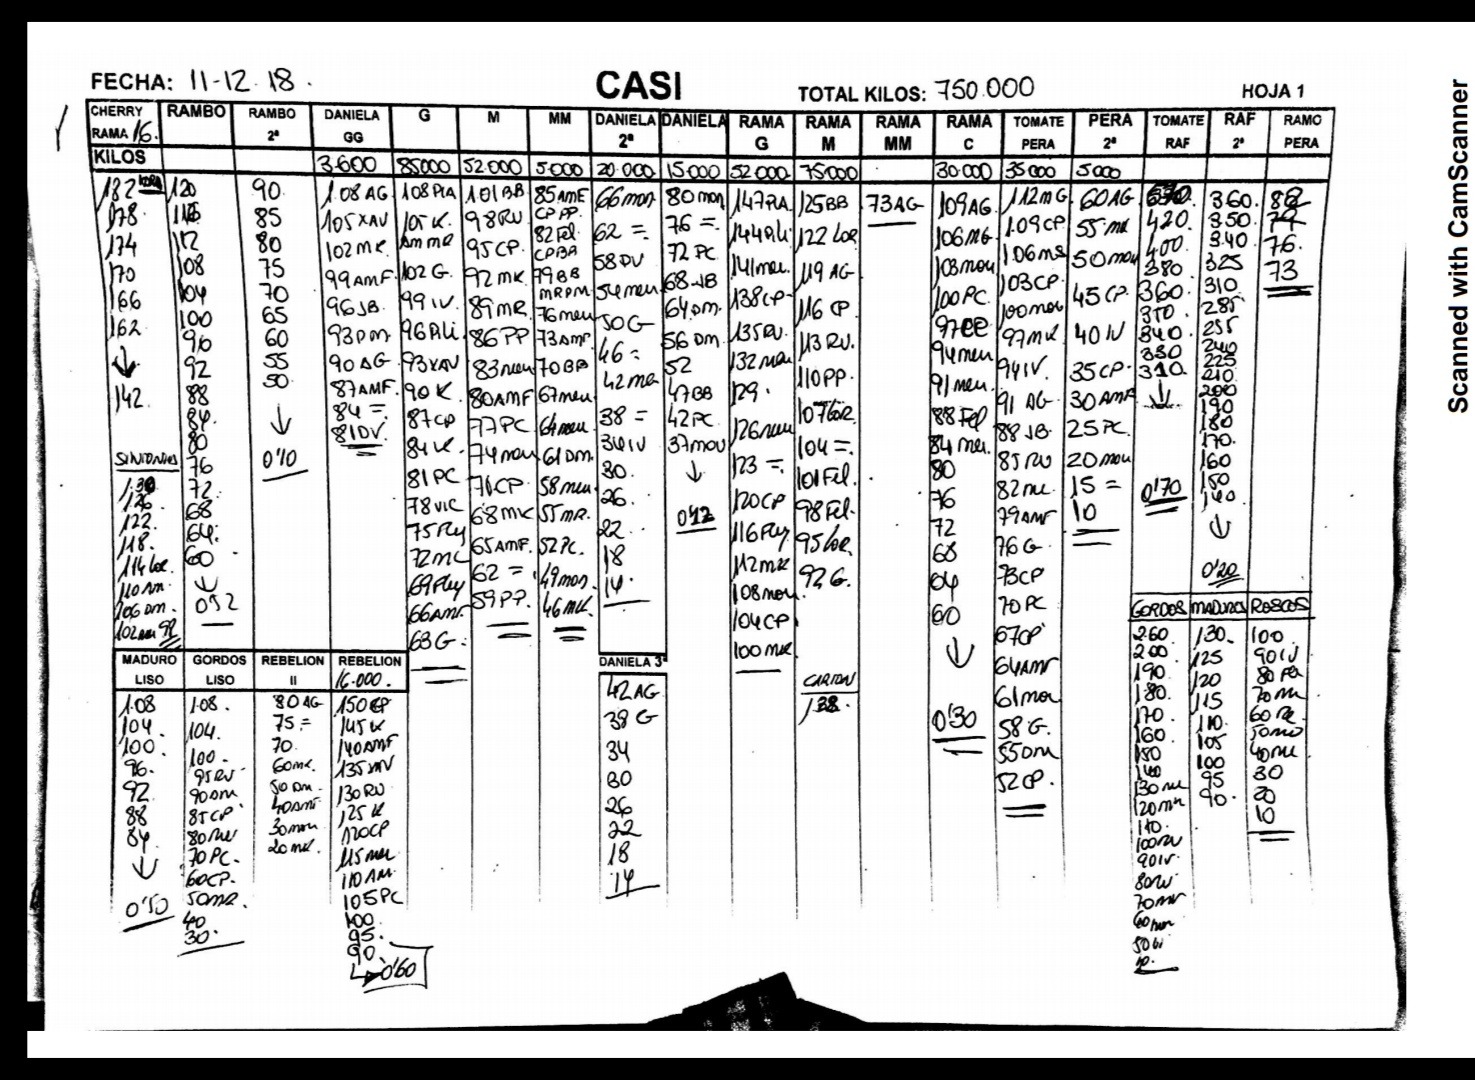 FECHA: 11-12-18.
CASI
TOTAL KILOS: 750.000
HOJA 1
CHERRY RAMA 16. RAMBO RAMBO 2ª DANIELA GG G M MM DANIELA 2ª DANIELA RAMA G RAMA M RAMA MM RAMA C TOMATE PERA PERA 2ª TOMATE RAF RAF 2ª RAMO PERA
KILOS 3.600 85000 52.000 5.000 20.000 15.000 52.000 75000 30.000 35.000 5.000
182
178
174
170
166
162
142.
120
116
112
108
104
100
96
92
88
84.
80
76
72
68
64.
60
0'52
90
85
80
75
70
65
60
55
50
0'10
108 AG
105 XAV
102 MK
99 AMF
96 JB
93 DM
90 AG
87 AMF
84 =
81 DV
108 PIA
105 K.
102 G.
99 IV.
96 Ali
93 XAV
90 K
87 CP
84 K
81 PC
78 VIC
75 Fly
72 MK
69 Fly
66 AMF
63 G.
101 BB
98 RV
95 CP.
92 MK
89 MR
86 PP
83 men
80 AMF
77 PC
74 mou
71 CP
68 MK
65 AMF.
62 =
59 PP.
85 AMF
CP PP.
82 Fel
CP BA
79 BB
MR DM
76 men
73 AMF
70 BB
67 men
64 men
61 DM.
58 men
55 MR.
52 PC.
49 mon
46 MK
66 mon
62 =
58 DV
54 men
50 G
46 =
42 MR
38 =
34 IV
30.
26.
22.
18
14.
80 mon
76 =
72 PC
68 JB
64 DM.
56 DM.
52
47 BB
42 PC.
37 mou
0'12
147 PIA
144 Ali
141 men.
138 CP.
135 RV.
132 mou
129.
126 men
123 =.
120 CP
116 Fly.
112 MK
108 mou
104 CP
100 MK
125 BB
122 Lor
119 AG
116 CP
113 RV.
110 PP.
107 Lor.
104 =.
101 Fel.
98 Fel.
95 Lor.
92 G.
CARTON
138.
73 AG
109 AG.
106 MG.
103 mou
100 PC.
97
94 men
91 men.
88 Fel
84 men.
80
76
72
68
64
60
0'30
112 MG
109 CP.
106 MS
103 CP.
100 mou
97 MK
94 IV.
91 AG
88 JB.
85 RV
82 MK
79 AMF
76 G.
73 CP
70 PC
67 CP
64 AMF
61 mou
58 G.
55 DM
52 CP.
60 AG
55 MK
50 mou
45 CP.
40 IV
35 CP.
30 AMF
25 PC.
20 mou
15 =
10
420.
400.
380.
360.
350.
340.
330
310.
0'70
360.
350.
340.
325
310
285
255
240
225
210
200
190
180
170.
160
150
140.
0'20
82
79
76.
73
130
126
122.
118.
114 Lor.
110 DM.
106 DM.
102 men 98
MADURO LISO
108
104.
100.
96.
92.
88
84.
0'50
GORDOS LISO
108.
104.
100.
95 RV.
90 DM
85 CP
80 RW
70 PC.
60 CP.
50 MR.
40
30.
REBELION II
80 AG
75 =
70.
60 MK.
50 DM.
40 AMF
30 mon
20 MK.
REBELION 16.000.
150 CP
145 K
140 AMF
135 XAV
130 RV
125 K
120 CP
115 men
110 AM
105 PC
100.
95.
90.
0'60
DANIELA 3ª
42 AG
38 G
34
30
26
22
18
14
GORDOS
260.
200.
190.
180.
170.
160.
150
140
130 MK
120 MK
110.
100 RV
90 IV.
80 IV
70 MR
60 mon
50
10.
MADUROS
130.
125
120
115
110.
105
100
95
90.
ROSCOS
100
90 IV
80
70
60
50
40
30
20
10
Scanned with CamScanner